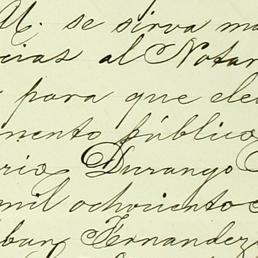 U. se sirva ma
cias al Notar
para que ele
mento público
rio Durango
mil ochocientos
ban Fernandez